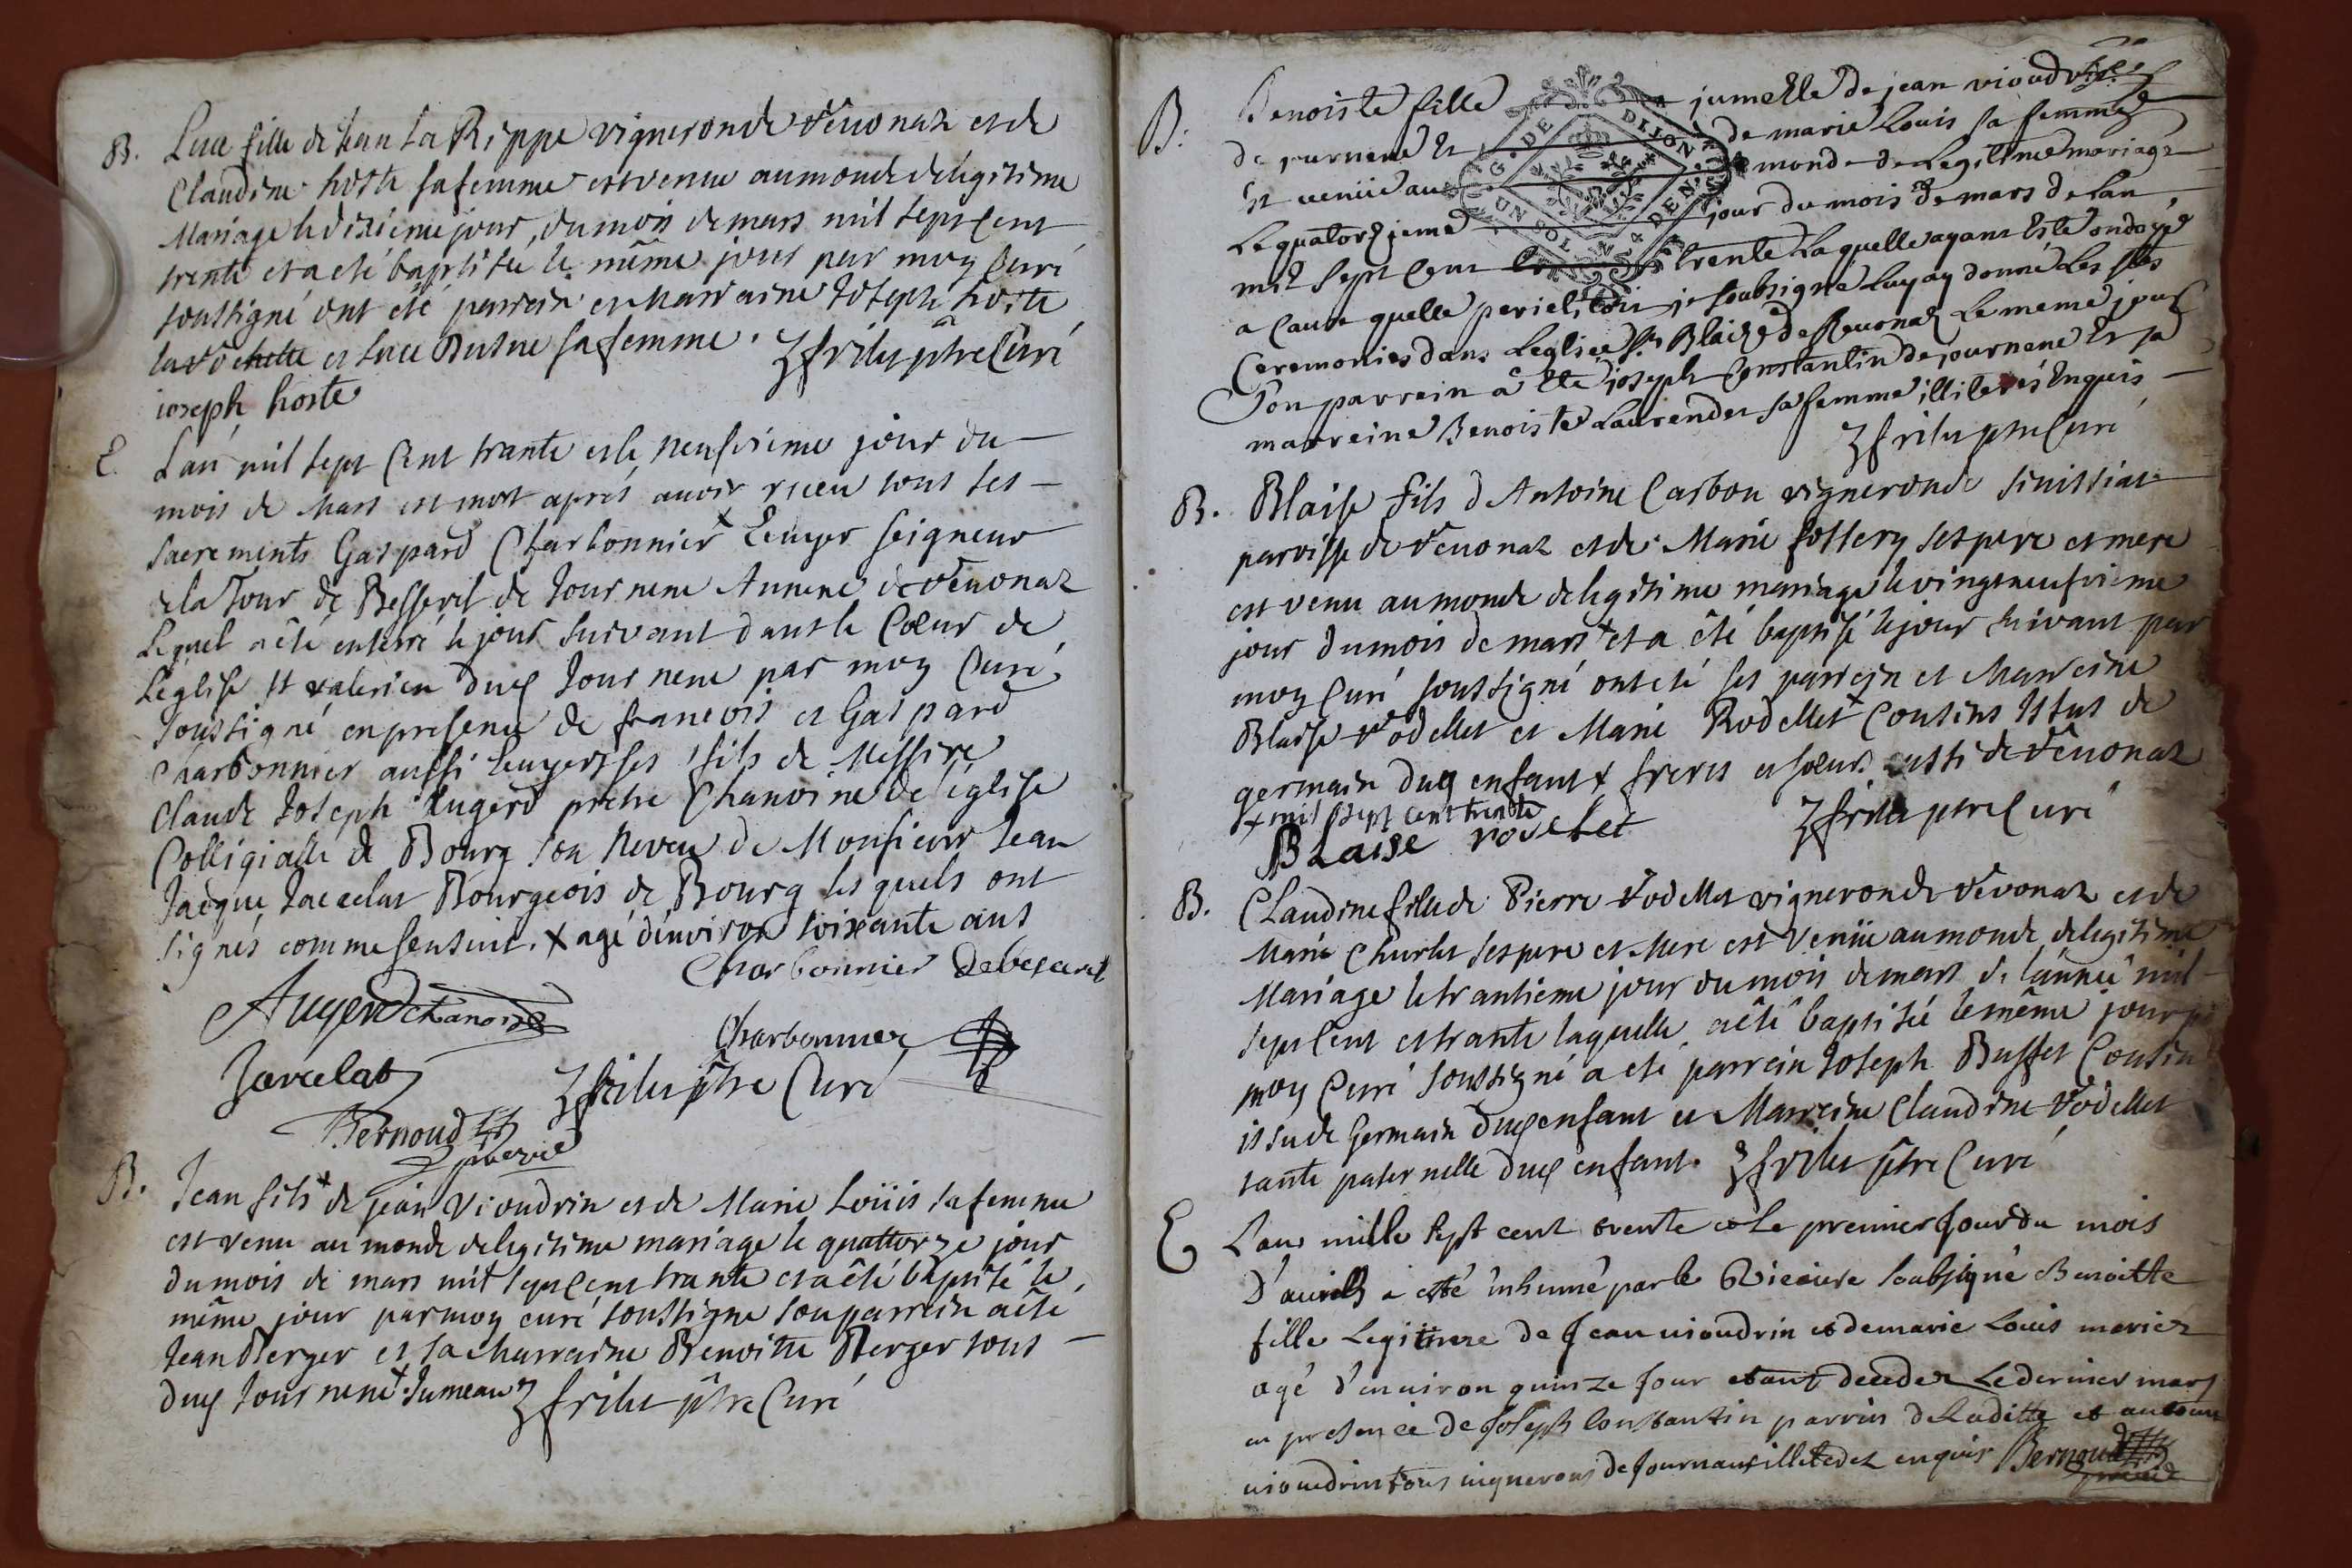 B. Luce fille de Jean La Rippe vigneron de Révonaz et de
Claudine hoste sa femme est venue au monde de legitime
Mariage le dixieme jour, du mois de mars mil sept cent
trente et a eté baptisée le même jour par moy Curé
soussigné ont eté parrein et Marraine Joseph hoste
et Luce sa femme. ptre Curé
ioseph hoste
E. L'an mil sept Cent trante et le neufvieme jour du
mois de Mars est mort aprés avoir receu tous ses
sacrements Gaspard Charbonnier x Ecuyer seigneur
de la Tour de Besserel de Journene Annexe de Révonaz
Lequel a êté enterré le jour suivant dans le Cœur de
L'église St valerien dud Journene par moy Curé
soussigné en presence de francois et Gaspard
Charbonnier aussi Ecuyers ses fils de Messire
Claude Joseph Augerd pretre Chanoine de l'église
Collégialle de Bourg son Neveu de Monsieur Jean
Jacque Jarcelat Bourgeois de Bourg lesquels ont
signés comme sensuit. x agé d'environ soixante ans
Charbonnier Debeserel
Augerd chanoine
Charbonnier
Jarcelat
ptre Curé
Bernoud
B. Jean fils x de jean Vioudrin et de Marie Loüis sa femme
est venu au monde de legitime mariage le quattorze jour
du mois de mars mil sept cent trante et a êté baptisé le
même jour par moy curé soussigné son parrein a êté
Jean Berger et sa Marraine Benoitte Berger tous
dud Journene x Jumeau ptre Curé
B: Benoiste fille DE DIJON jumelle de jean vioudrin
de journene Et de marie Louis sa femme
Est venüe au monde de Legitime mariage
Le quatorzieme UN SOL 4 DEN. jour du mois de mars de Lan
mil sept cent trente Laquelle ayant Esté ondoyé
a Cause quelle periclitoit je soubsigné Luy ay donné Les Stes
Ceremonies dans Leglise St Blaize de Revonaz Le meme jour
Son parrein a Eté joseph Constantin de journene Et sa
marreine Benoiste Laurender sa femme illiterés Enquis
ptre Curé
B. Blaise fils d'Antoine Carbon vigneron de Senissiat
parroisse de Révonaz et de Marie ses pere et mere
est venu au monde de legitime mariage le vingtneufvieme
jour du mois de mars x et a êté baptisé le jour suivant par
moy Curé soussigné ont eté ses parrein et Marreine
Blaise Rodellet et Marie Rodellet Cousins Issus de
germain dud enfant x freres et sœur aussi de Révonaz
x mil sept cent trente
BLaise rodelet ptre Curé
B. Claudine fille de Pierre Rodellet vigneron de Révonaz et de
Marie Charlet ses pere et Mere est Venüe au monde de legitime
Mariage le trantieme jour du mois de mars de l'année mil
sept Cent et trante laquelle a êté baptisée le même jour par
moy Curé soussigné a eté parrein Joseph Buffet Cousin
issu de Germain dud enfant et Marreine Claudine Rodellet
tante paternelle dud enfant. ptre Curé
E L'an mille sept cent trente et Le premier Jour du mois
D'avrils a esté inhumé par le Vicaire soubsigné Benoitte
fille Legitime de Jean vioudrin et de marie Louis mariez
agé d'environ quinze jour etant decedez Le dernier mars
en presence de Joseph Constantin parrin de Laditte et antoine
vioudrin tous vignerons de Journans illitedez enquis Bernoud